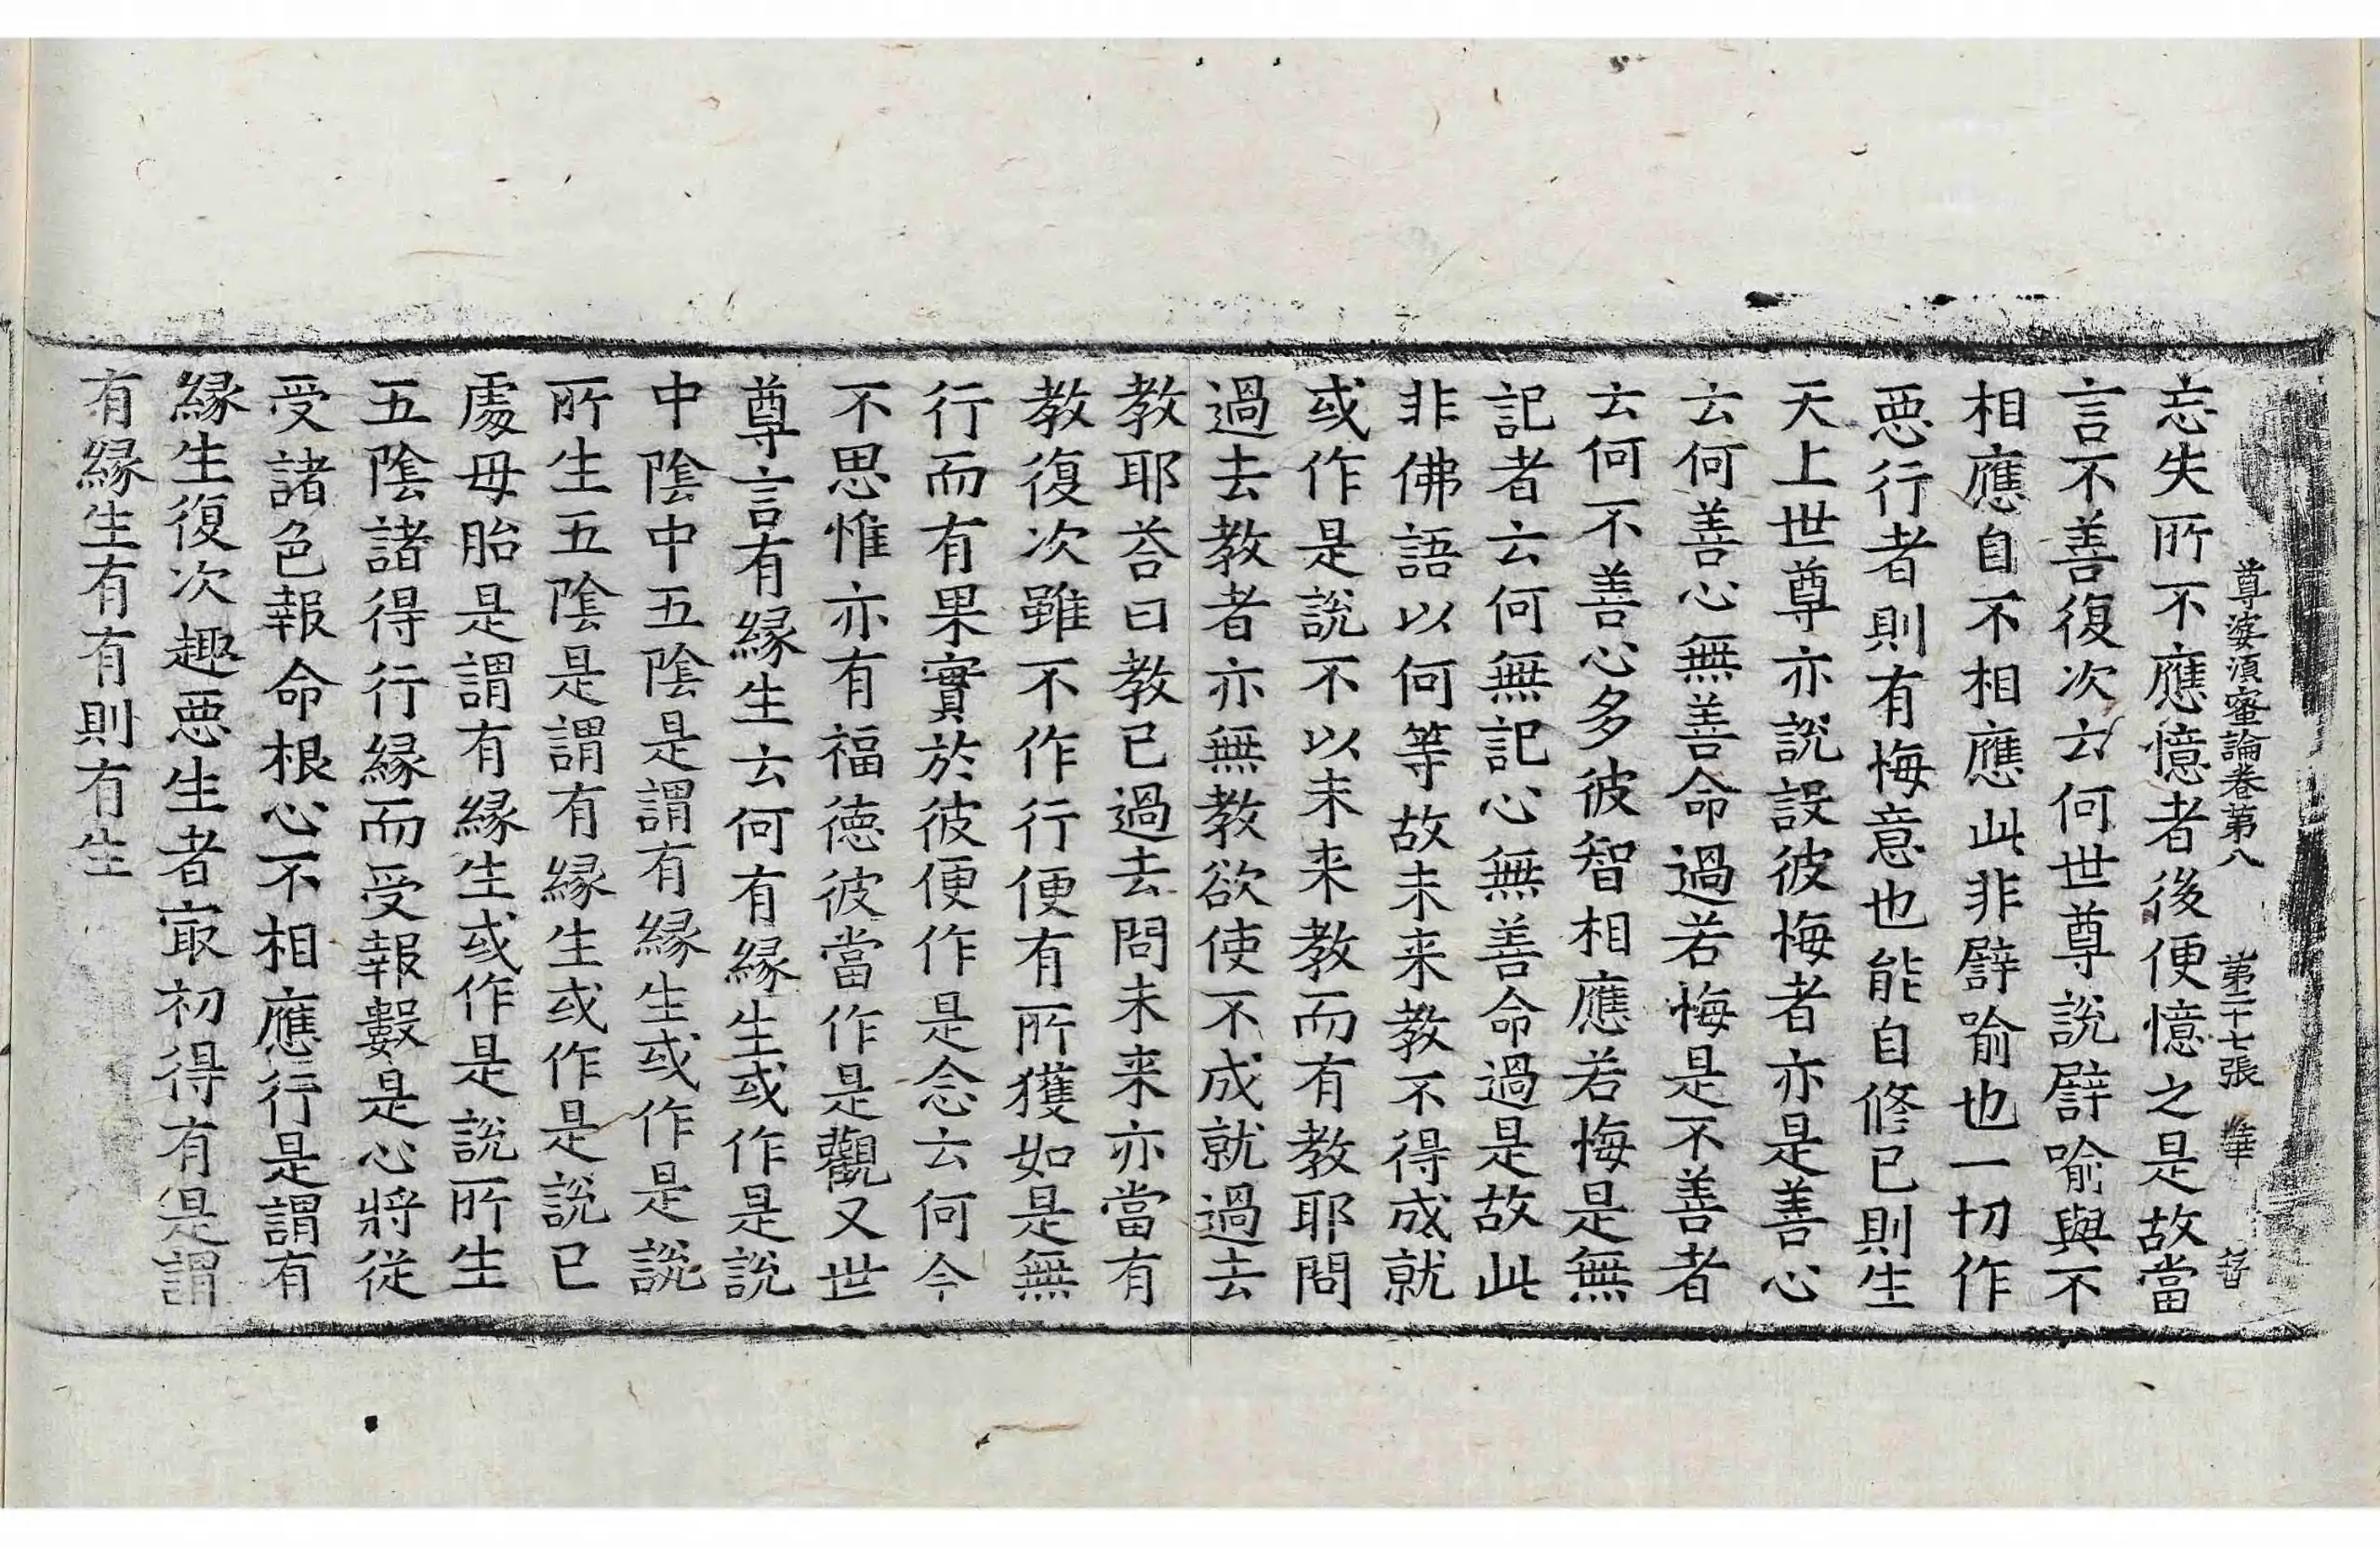 尊婆湏蜜論卷第八 第二十七張 華
忘失所不應憶者後便憶之是故當
言不善復次云何世尊說譬喻與不
相應自不相應此非譬喻也一切作
惡行者則有悔意也能自修已則生
天上世尊亦說設彼悔者亦是善心
云何善心無善命過若悔是不善者
云何不善心多彼智相應若悔是無
記者云何無記心無善命過是故此
非佛語以何等故未来教不得成就
或作是說不以未来教而有教耶問
過去教者亦無教欲使不成就過去
教耶荅曰教已過去問未来亦當有
教復次雖不作行便有所獲如是無
行而有果實於彼便作是念云何今
不思惟亦有福德彼當作是觀又世
尊言有縁生云何有縁生或作是說
中陰中五陰是謂有縁生或作是說
所生五陰是謂有縁生或作是說已
處母胎是謂有縁生或作是說所生
五陰諸得行縁而受報數是心將從
受諸色報命根心不相應行是謂有
縁生復次趣惡生者㝡初得有是謂
有縁生有有則有生